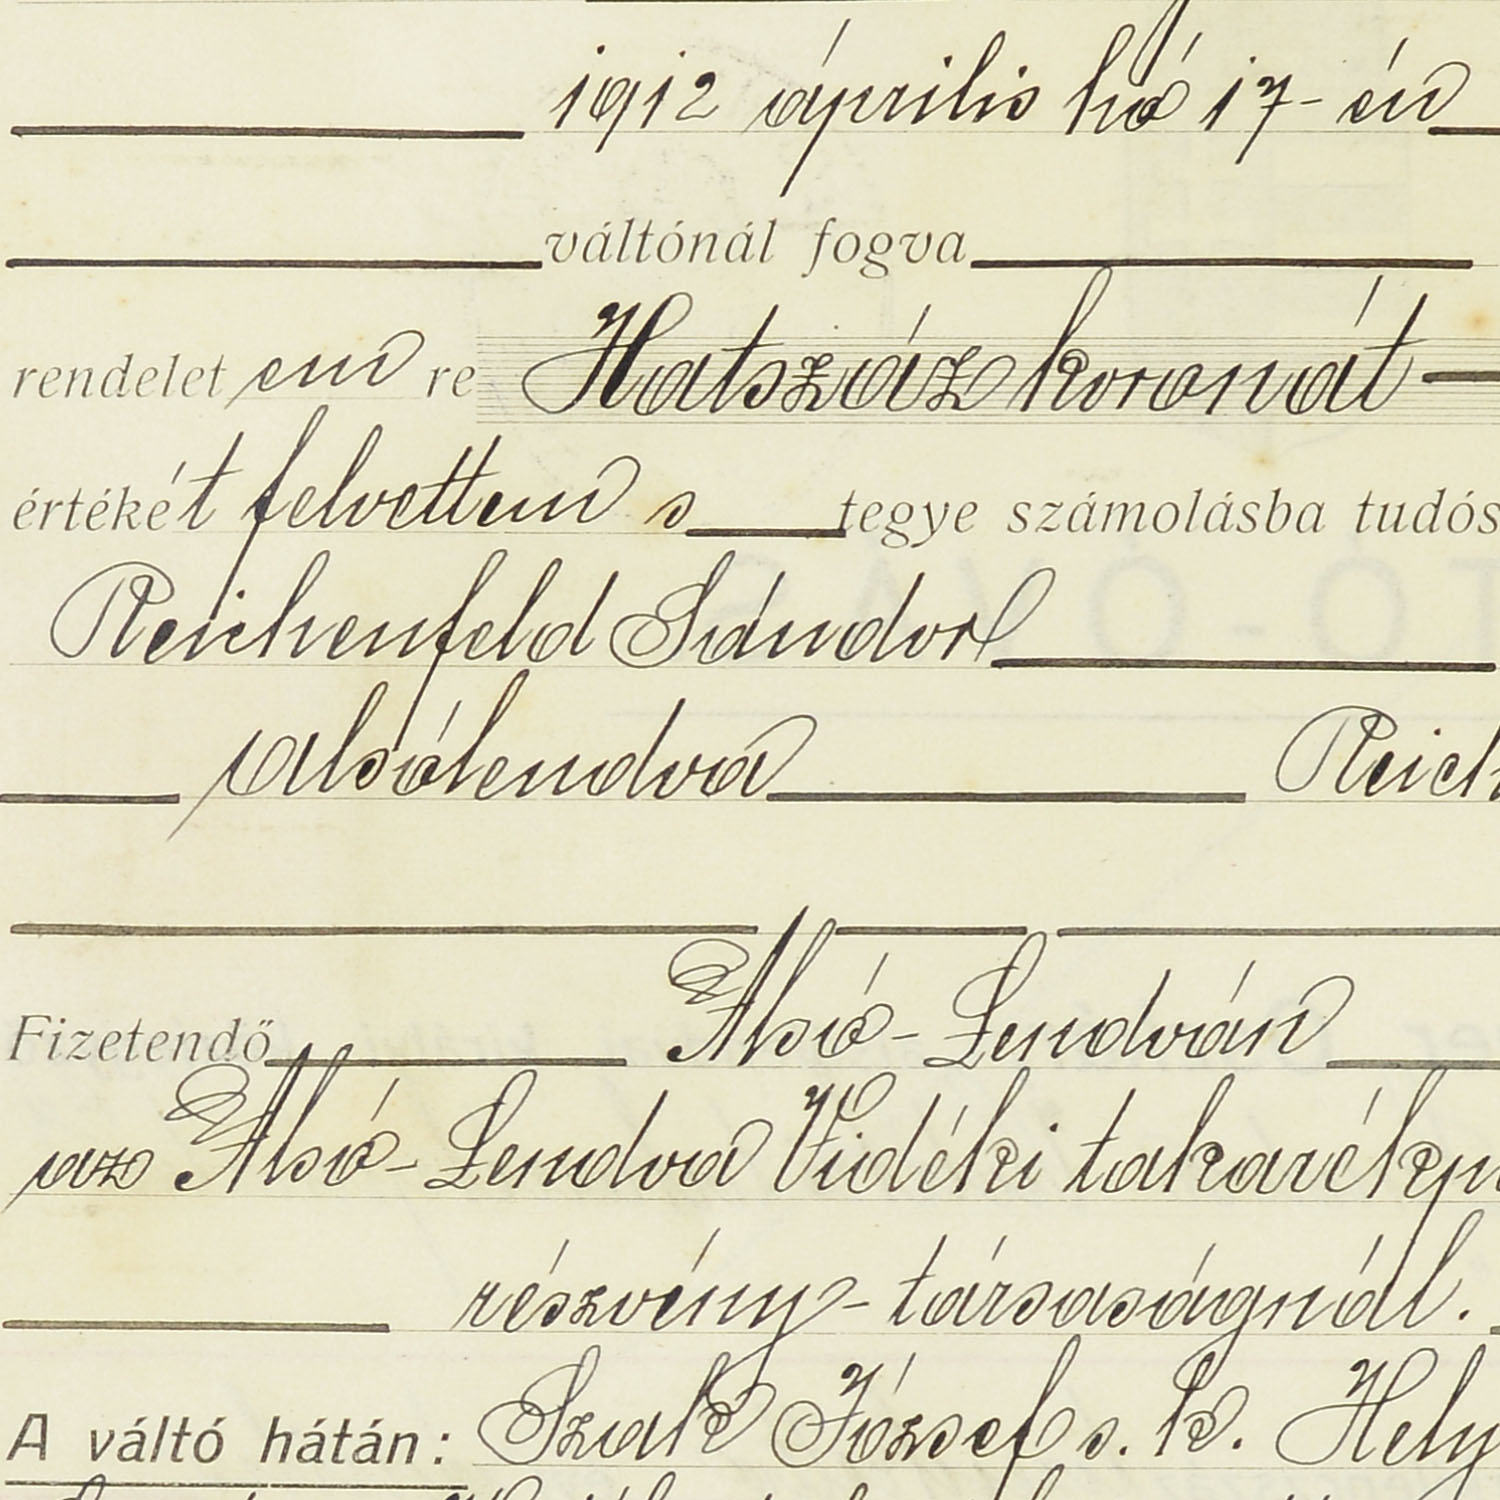 1912 április hó 17-én
váltónál fogva
rendelet em re Hatszáz koronát
értékét felvettem s tegye számolásba tudós
Reichenfeld Sándor
Alsólendva Reich
Fizetendő Alsó-Lendván
az Alsó-Lendva Vidéki takarékp
részvény-társaságnál.
A váltó hátán: Szak József s. k. Hely